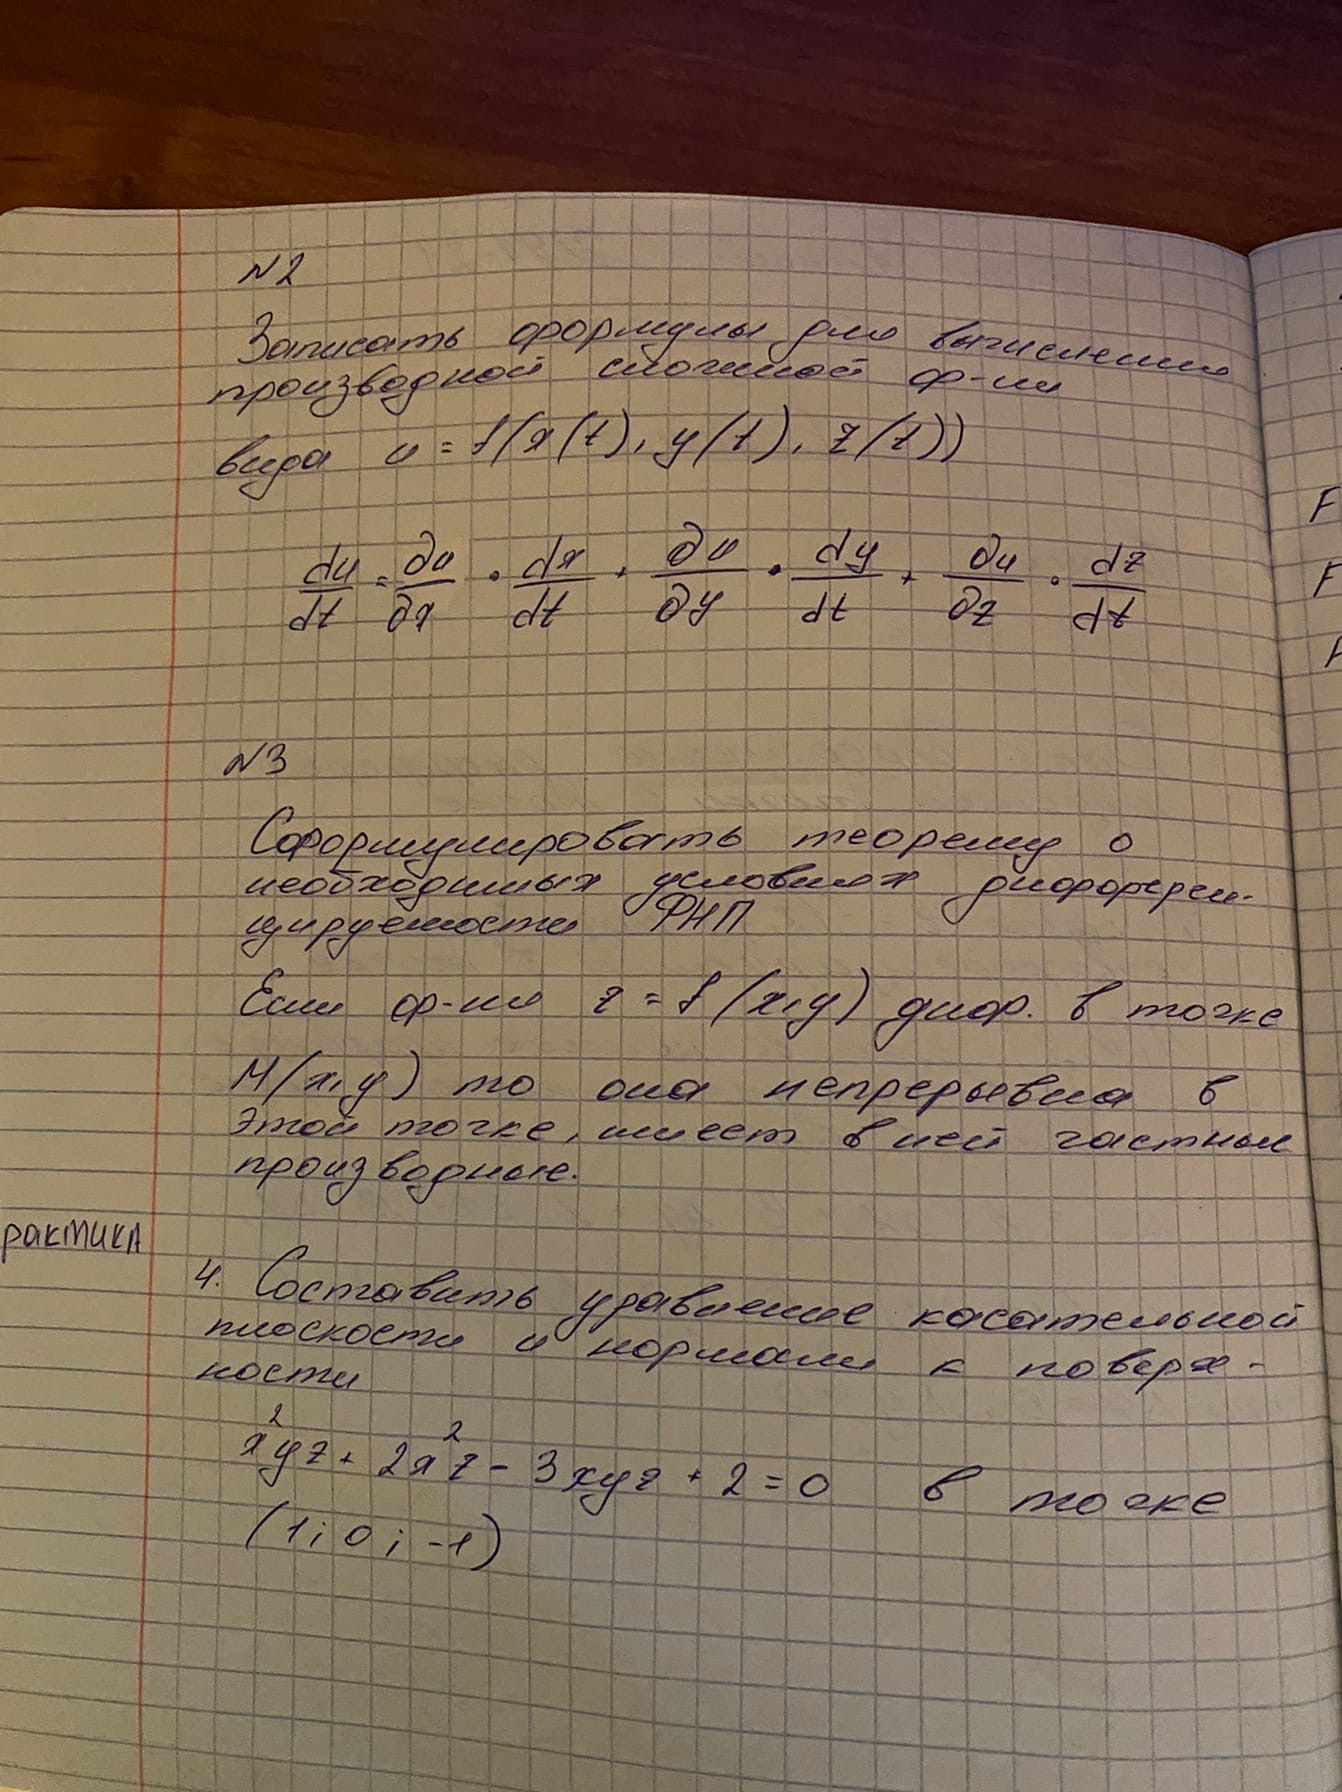 №2
Записать формулы для вычисления
производной сложной ф-ии
вида u = f(x(t), y(t), z(t))
du/dt = ∂u/∂x · dx/dt + ∂u/∂y · dy/dt + ∂u/∂z · dz/dt
№3
Сформулировать теорему о
необходимых условиях дифферен-
цируемости ФНП
Если ф-ия z = f(x,y) диф. в точке
M(x,y) то она непрерывна в
этой точке, имеет в ней частные
производные.
рактика
4. Составить уравнение касательной
плоскости и нормали к поверх-
ности
x²yz + 2x²z - 3xyz + 2 = 0 в точке
(1; 0; -1)
F
F